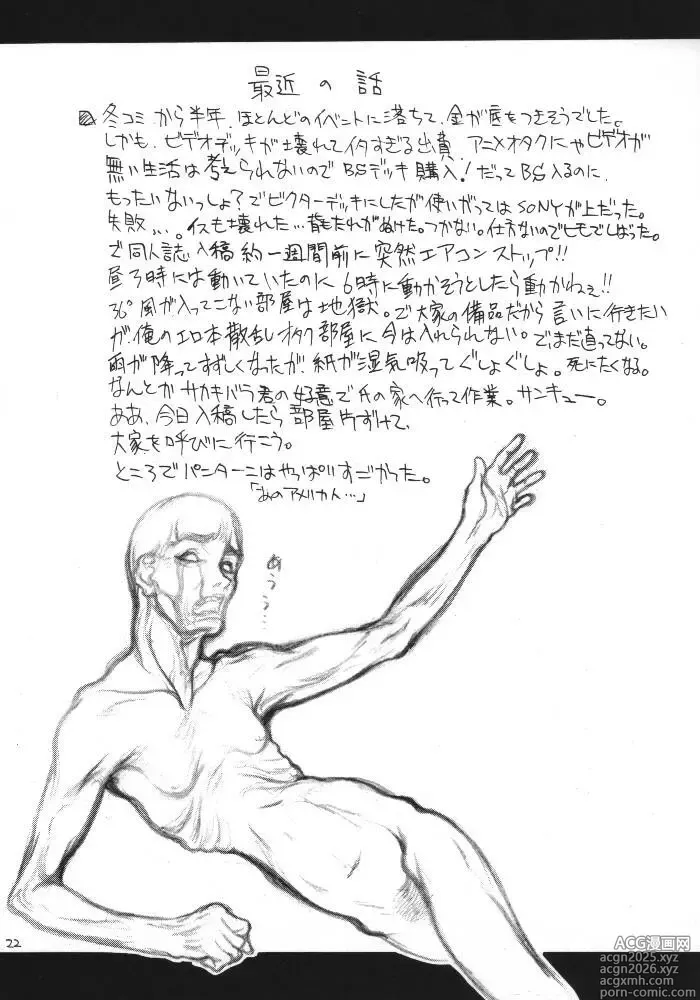 最近の話
冬コミから半年、ほとんどのイベントに落ちて、金が底をつきそうでした。
しかも、ビデオデッキが壊れてイタすぎる出費 アニメオタクにゃビデオが
無い生活は考えられないのでBSデッキ購入!だってBS入るのに、
もったいないっしょ?でビクターデッキにしたが使いがってはSONYが上だった。
失敗...。イスも壊れた...背もたれがぬけた。つかない。仕方ないのでヒモでしばった。
で同人誌入稿約一週間前に突然エアコンストップ!!
昼3時には動いていたのに6時に動かそうとしたら動かねぇ!!
36°風が入ってこない部屋は地獄。で大家の備品だから言いに行きたい
が、俺のエロ本散乱オタク部屋に今は入れられない。でまだ直ってない。
雨が降ってすずしくなったが、紙が湿気吸ってぐしょぐしょ。死にたくなる。
なんとかサカキバラ君の好意で氏の家へ行って作業。サンキュー。
ああ、今日入稿したら部屋片ずけて、
大家を呼びに行こう。
ところでパンターニはやっぱりすごかった。
「あのアメリカ人...」
あうぅ...
22
ACG漫画网
acgn2025.xyz
acgn2026.xyz
acgxmh.com
porn-comic.com